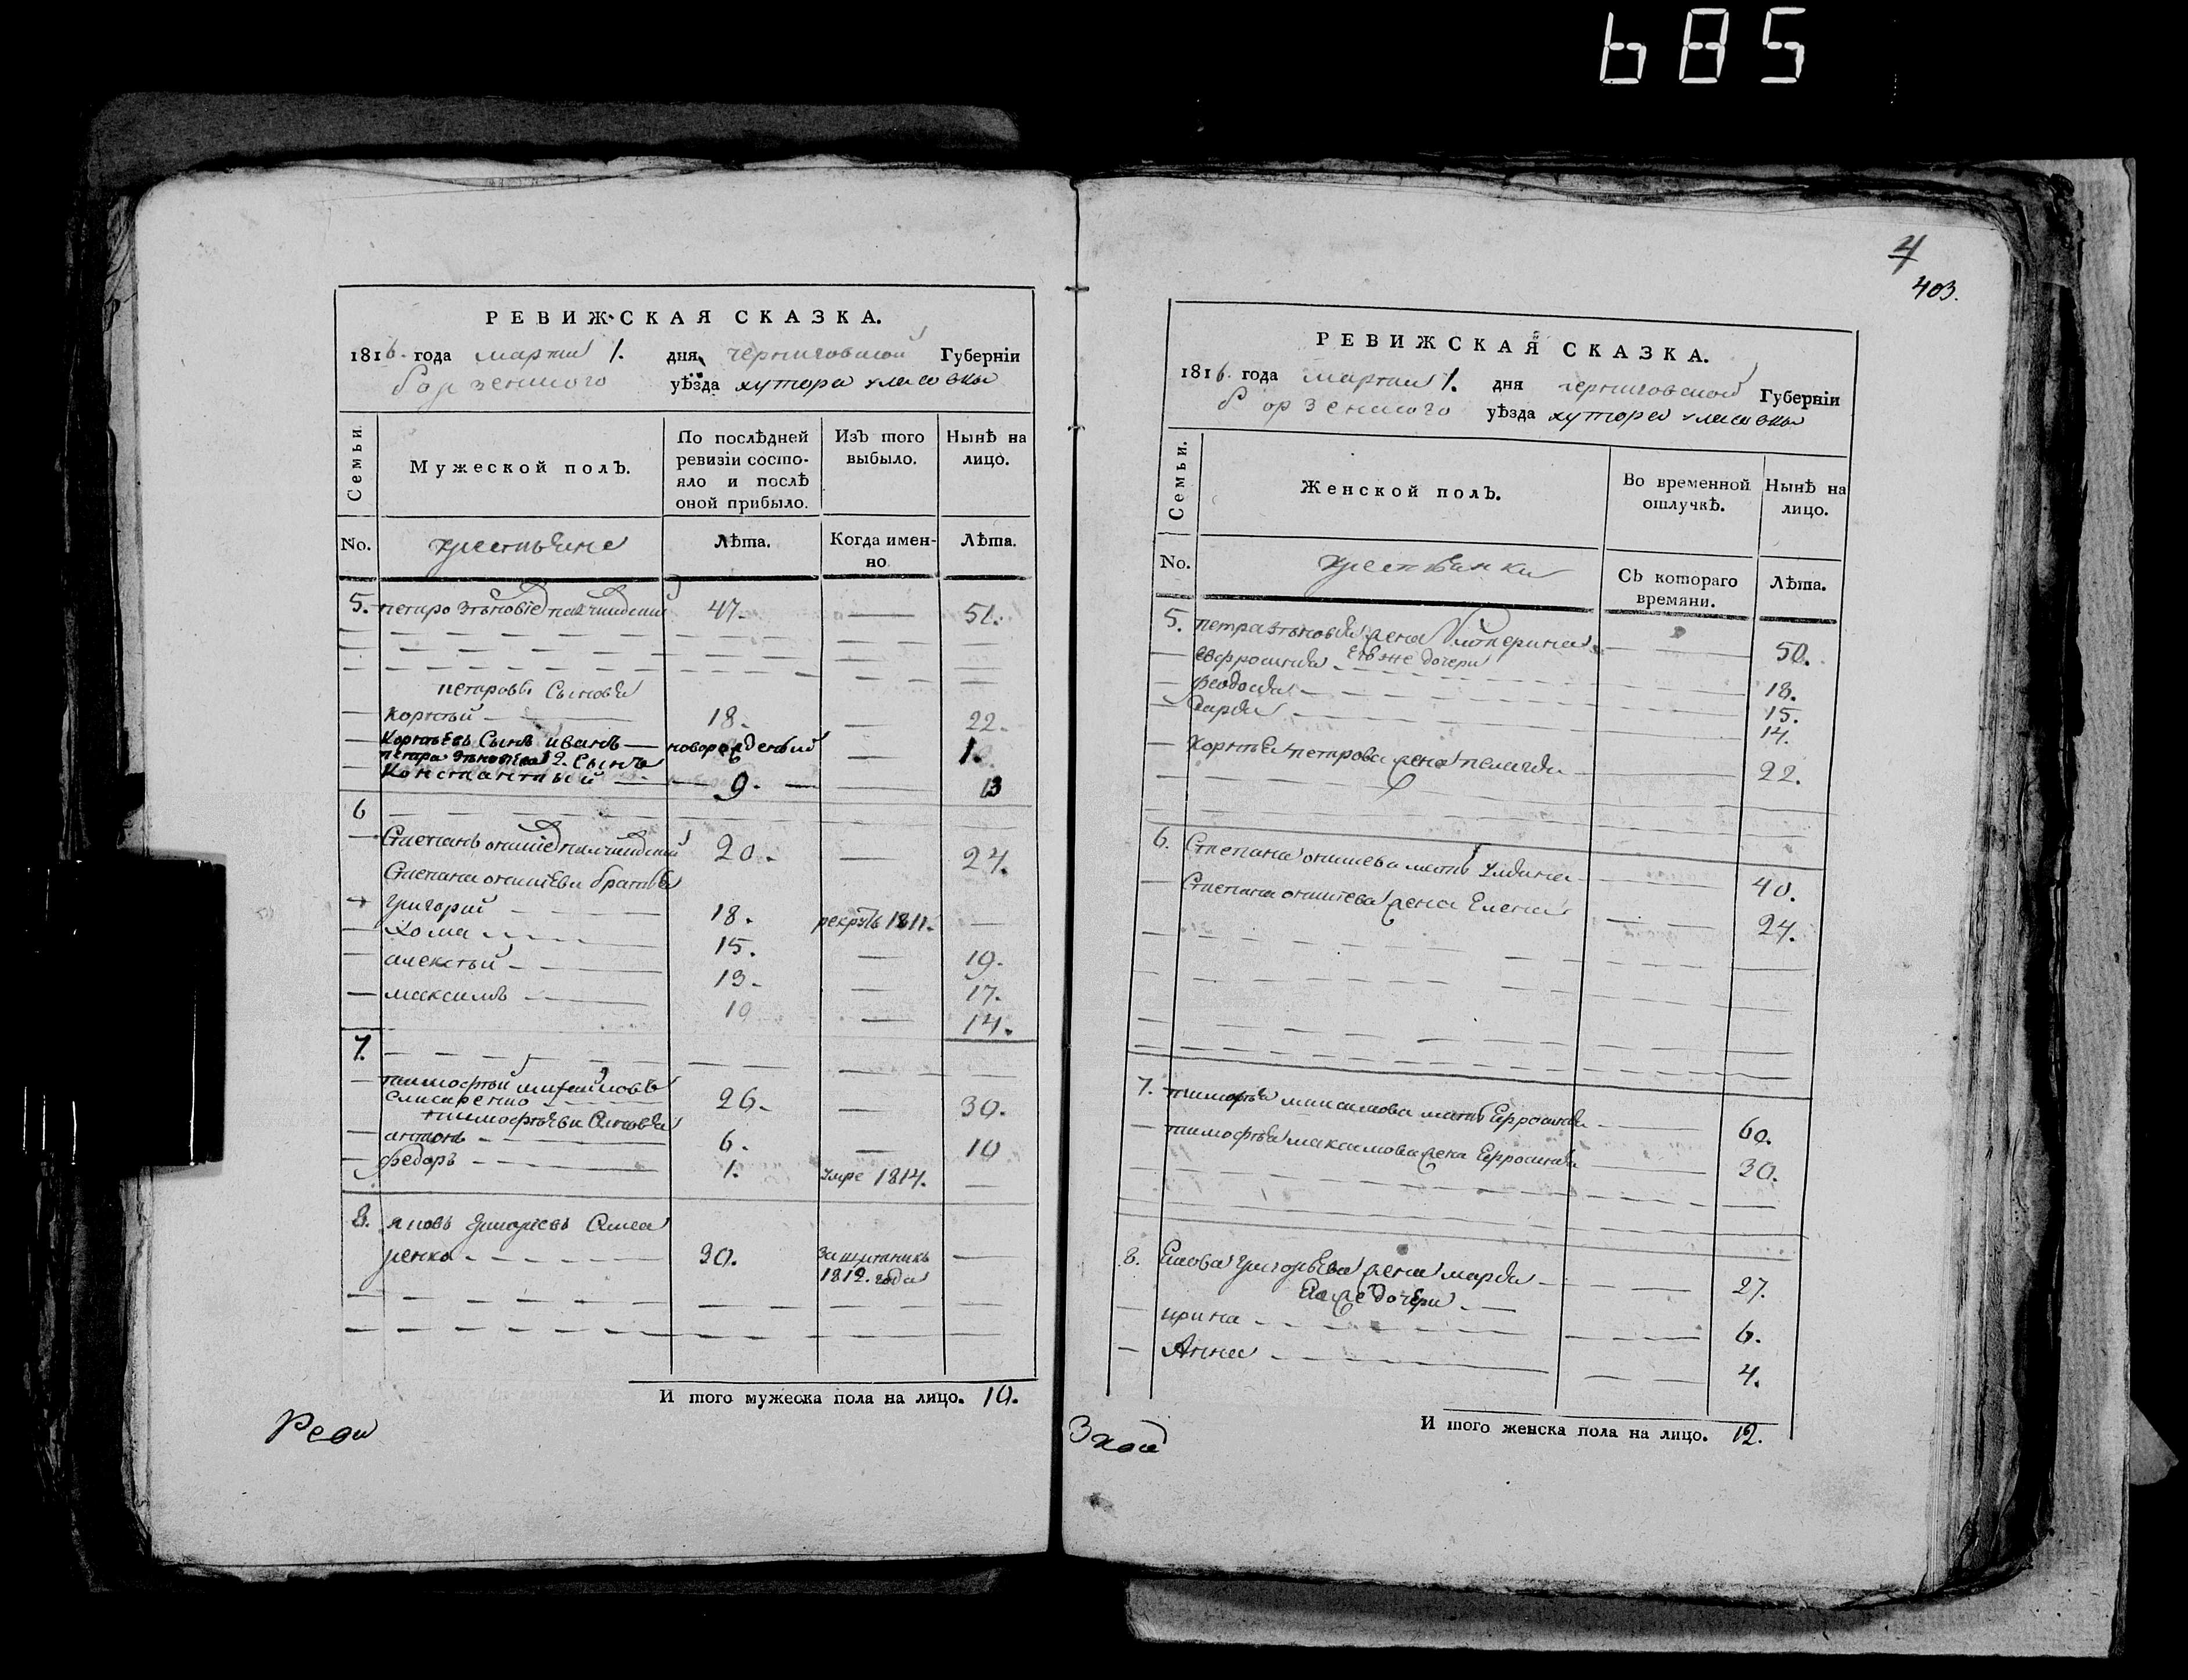 685
4
403.
РЕВИЖСКАЯ СКАЗКА.
1816. года марта 1. дня черниговской Губерніи
борзенского уѣзда хутора
Семьи.
Мужеской полъ.
По послѣдней ревизіи состояло и послѣ оной прибыло.
Изъ того выбыло.
Нынѣ на лицо.
No. крестьяне Лѣта. Когда именно Лѣта.
5. петро 47. 51.
петровы сыновья
Корнѣй 18. 22.
Корнѣевъ сынъ иванъ новорожденный 1.
петра 2. сынъ
Константный 9. 13
6
Степанъ 20. 24.
Степана братья
Григорий 18. рекрутъ 1811.
Хома 15. 19.
алексѣй 13. 17.
максимъ 10 14.
7.
тимофѣй
слисаренко 26. 30.
тимофѣевы сыновья
антонъ 6. 10
федоръ 1. умре 1814.
8. яковъ григориевъ слиса
ренко 30. 1812. года
И того мужеска пола на лицо. 10.
Реви
РЕВИЖСКАЯ СКАЗКА.
1816. года марта 1. дня черниговской Губерніи
борзенского уѣзда хутора
Семьи.
Женской полъ.
Во временной отлучкѣ.
Нынѣ на лицо.
No. крестьянки Съ котораго времяни. Лѣта.
5. петра жена катерина 50.
дочери
евфросинія 18.
феодосия 15.
дария 14.
Корнѣя петрова жена пелагея 22.
6. Степана мать улияна 40.
Степана жена Елена 24.
7. тимофѣя максимова мать Ефросиния 60.
тимофѣя максимова жена Ефросиния 30.
8. Якова григорьева жена мария 27.
Ея же дочери
ирина 6.
Анна 4.
И того женска пола на лицо. 12.